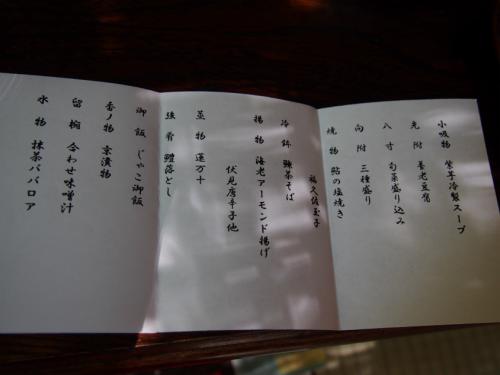 小吸物 紫芋冷製スープ
先附 養老豆腐
八寸 旬菜盛り込み
向附 三種盛り
焼物 鮎の塩焼き
福久佐玉子
冷鉢 鰊茶そば
揚物 海老アーモンド揚げ
伏見唐辛子他
蒸物 蓮万十
強肴 鱧落とし
御飯 じゃこ御飯
香ノ物 京漬物
留椀 合わせ味噌汁
水物 抹茶ババロア